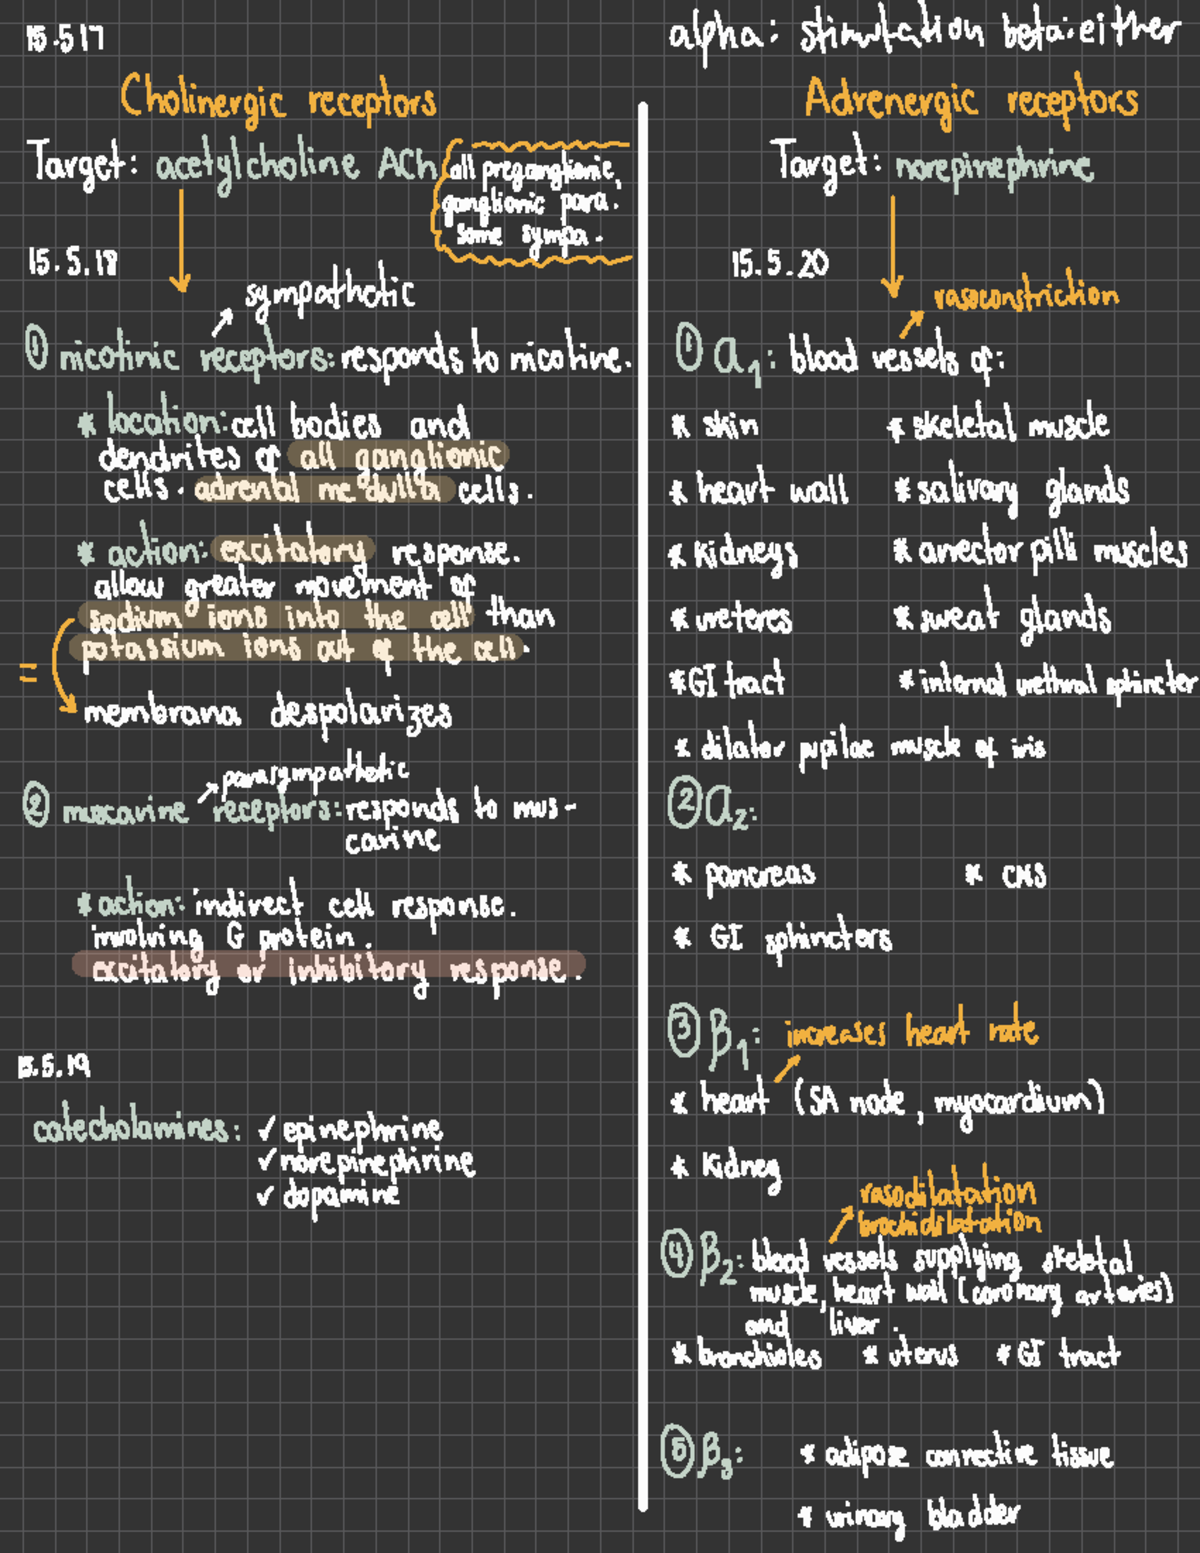 15.517
Cholinergic receptors
Target: acetylcholine ACh
all preganglionic,
ganglionic para.
some sympa.
15.5.18
sympathetic
① nicotinic receptors: responds to nicotine.
* location: cell bodies and
dendrites of all ganglionic
cells. adrenal medulla cells.
* action: excitatory response.
allow greater movement of
sodium ions into the cell than
potassium ions out of the cell.
=
membrana despolarizes
parasympathetic
② muscarine receptors: responds to mus-
carine
* action: indirect cell response.
involving G protein.
excitatory or inhibitory response.
15.5.19
catecholamines: ✓ epinephrine
✓ norepinephrine
✓ dopamine
alpha: stimulation beta: either
Adrenergic receptors
Target: norepinephrine
15.5.20
vasoconstriction
① α1: blood vessels of:
* skin * skeletal muscle
* heart wall * salivary glands
* kidneys * arrector pilli muscles
* ureteres * sweat glands
* GI tract * internal urethral sphincter
* dilator pupilae muscle of iris
② α2:
* pancreas * CNS
* GI sphincters
③ β1: increases heart rate
* heart (SA node, myocardium)
* kidney
vasodilatation
brochidilatation
④ β2: blood vessels supplying skeletal
muscle, heart wall (coronary arteries)
and liver.
* bronchioles * uterus * GI tract
⑤ β3: * adipose connective tissue
* urinary bladder